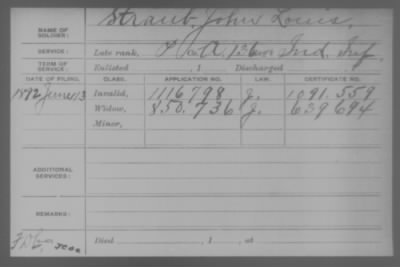 NAME OF SOLDIER: Straub, John Louis,
SERVICE: Late rank, Co. A, 136" Ind. Inf.
TERM OF SERVICE: Enlisted , 1 Discharged
DATE OF FILING. CLASS. APPLICATION NO. LAW. CERTIFICATE NO.
June 13 Invalid, 1116798 J. 1091.559
Widow, 850.736 J. 639694
Minor,
ADDITIONAL SERVICES:
REMARKS:
Died , 1 , at